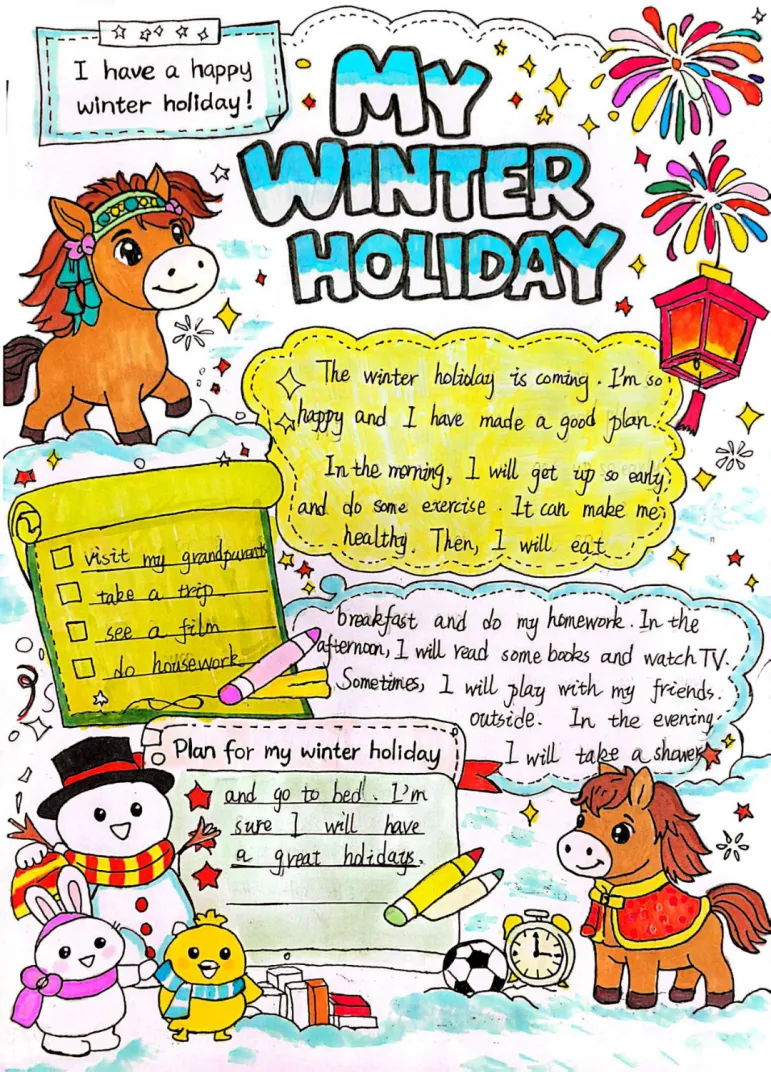 I have a happy
winter holiday!
MY
WINTER
HOLIDAY
The winter holiday is coming. I'm so
happy and I have made a good plan.
In the morning, I will get up so early
and do some exercise. It can make me
healthy. Then, I will eat
visit my grandparents
take a trip
see a film
do housework
breakfast and do my homework. In the
afternoon, I will read some books and watch TV.
Sometimes, I will play with my friends.
outside. In the evening,
I will take a shower
Plan for my winter holiday
and go to bed. I'm
sure I will have
a great holidays.